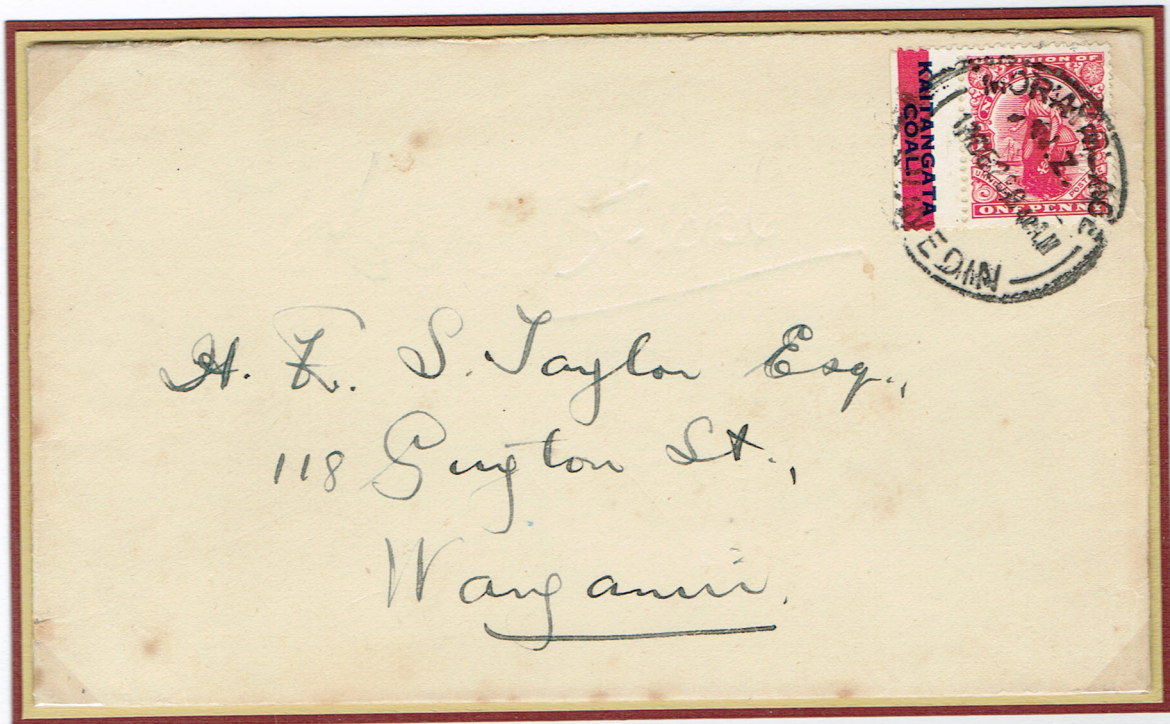 KAITANGATA
COAL
DOMINION OF
ONE PENNY
N.Z.
H. F. S. Taylor Esq.,
118 Guyton St.,
Wanganui.